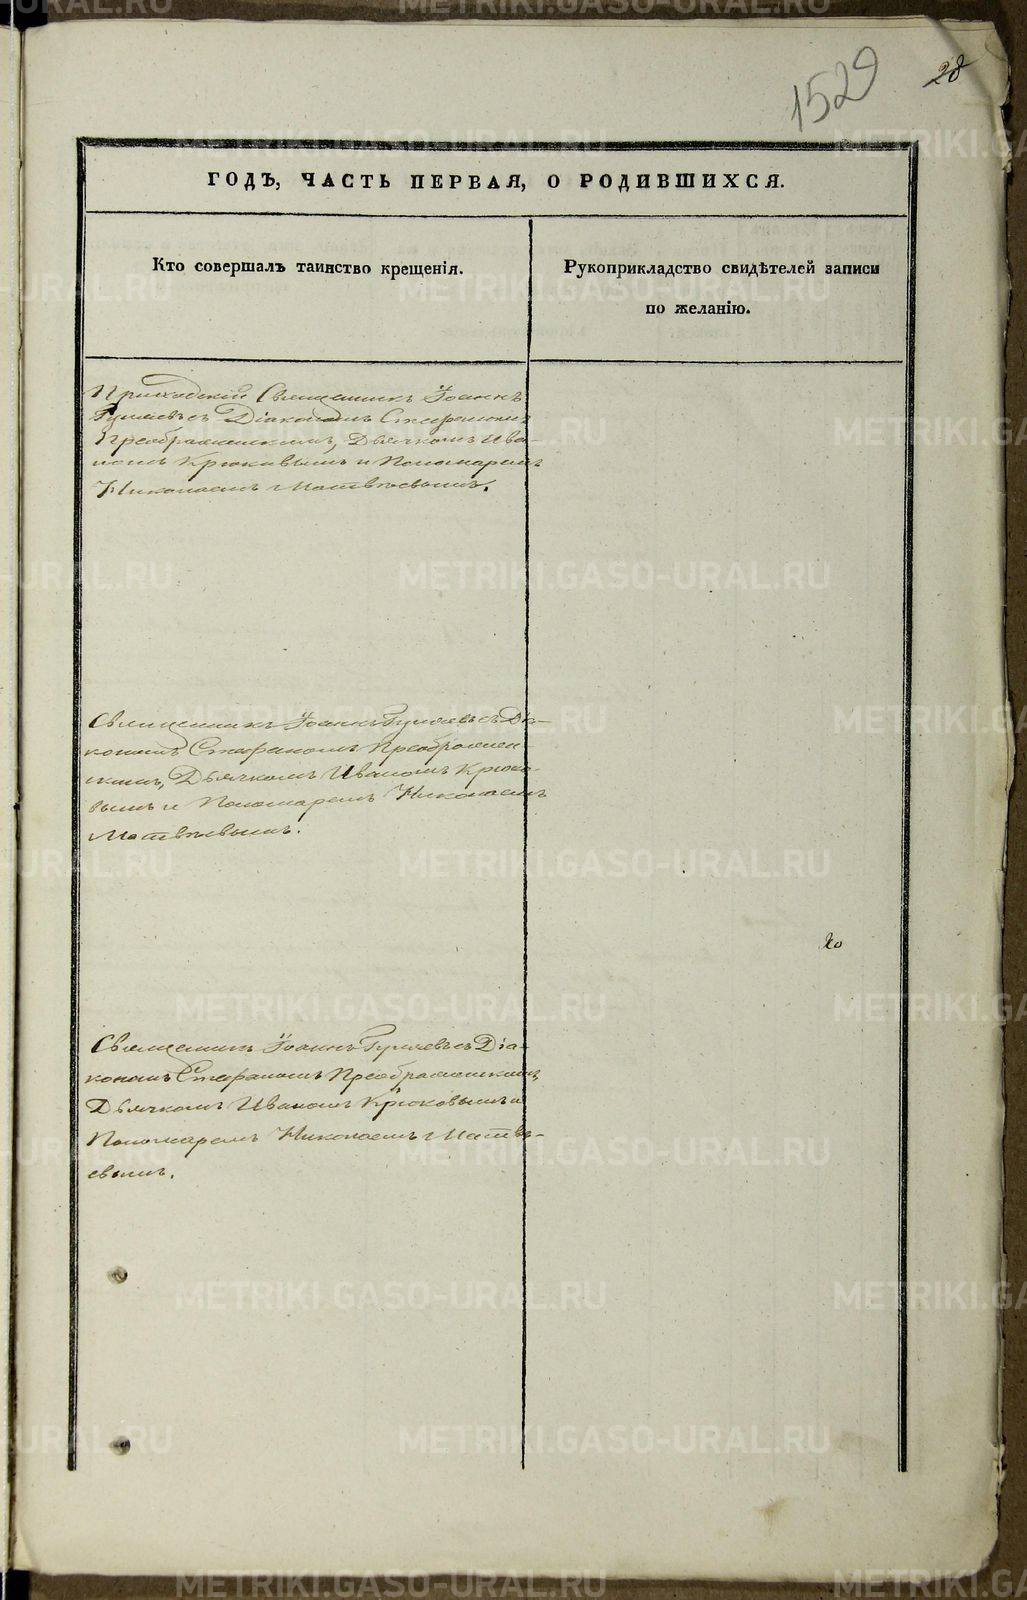 1529
28
ГОДЪ, ЧАСТЬ ПЕРВАЯ, О РОДИВШИХСЯ.
Кто совершалъ таинство крещенія.
Рукоприкладство свидѣтелей записи
по желанію.
Приходскій Священникъ Іоаннъ
Гуляевъ съ Діакономъ Стефаномъ
Преображенскимъ, Дьячкомъ Ива-
номъ Крюковымъ и Пономаремъ
Николаемъ Матвѣевымъ.
Священникъ Іоаннъ Гуляевъ съ Діа-
кономъ Стефаномъ Преображен-
скимъ, Дьячкомъ Иваномъ Крюко-
вымъ и Пономаремъ Николаемъ
Матвѣевымъ.
Священникъ Іоаннъ Гуляевъ съ Діа-
кономъ Стефаномъ Преображенскимъ,
Дьячкомъ Иваномъ Крюковымъ и
Пономаремъ Николаемъ Матвѣ-
евымъ.
METRIKI.GASO-URAL.RU